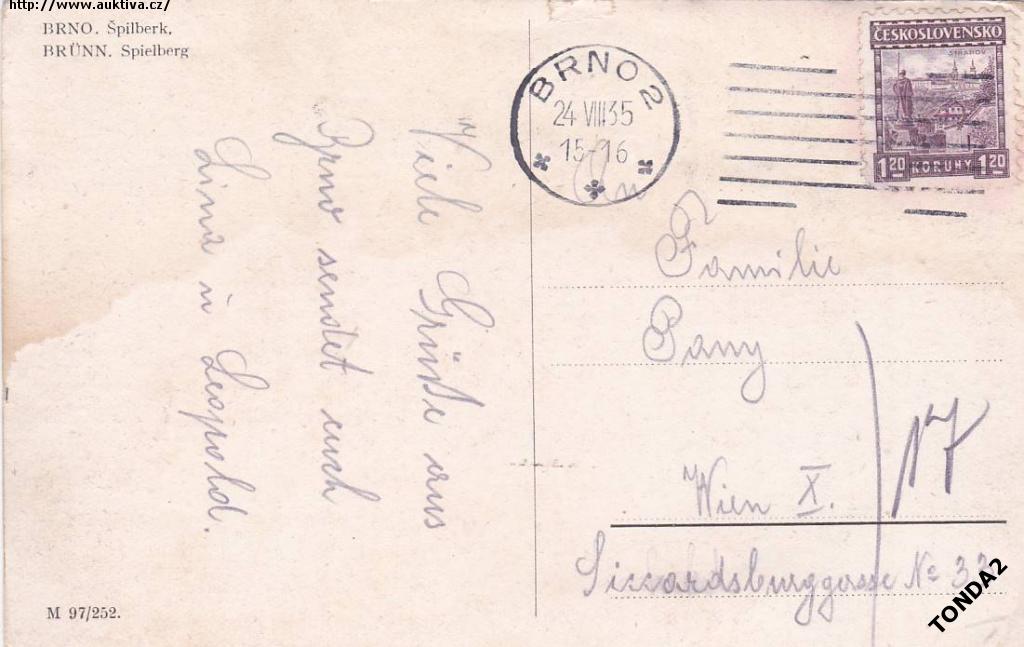 http://www.auktiva.cz/
BRNO. Špilberk,
BRÜNN. Spielberg
Viele Grüße aus
Brno sendet euch
Lina u Leopold.
M 97/252.
BRNO 2
24 VIII 35
15-16
ČESKOSLOVENSKO
STRAHOV
1.20 KORUNY 1.20
An
Familie
Pany
Wien X.
17
Siccardsburggasse No 33
TONDA2